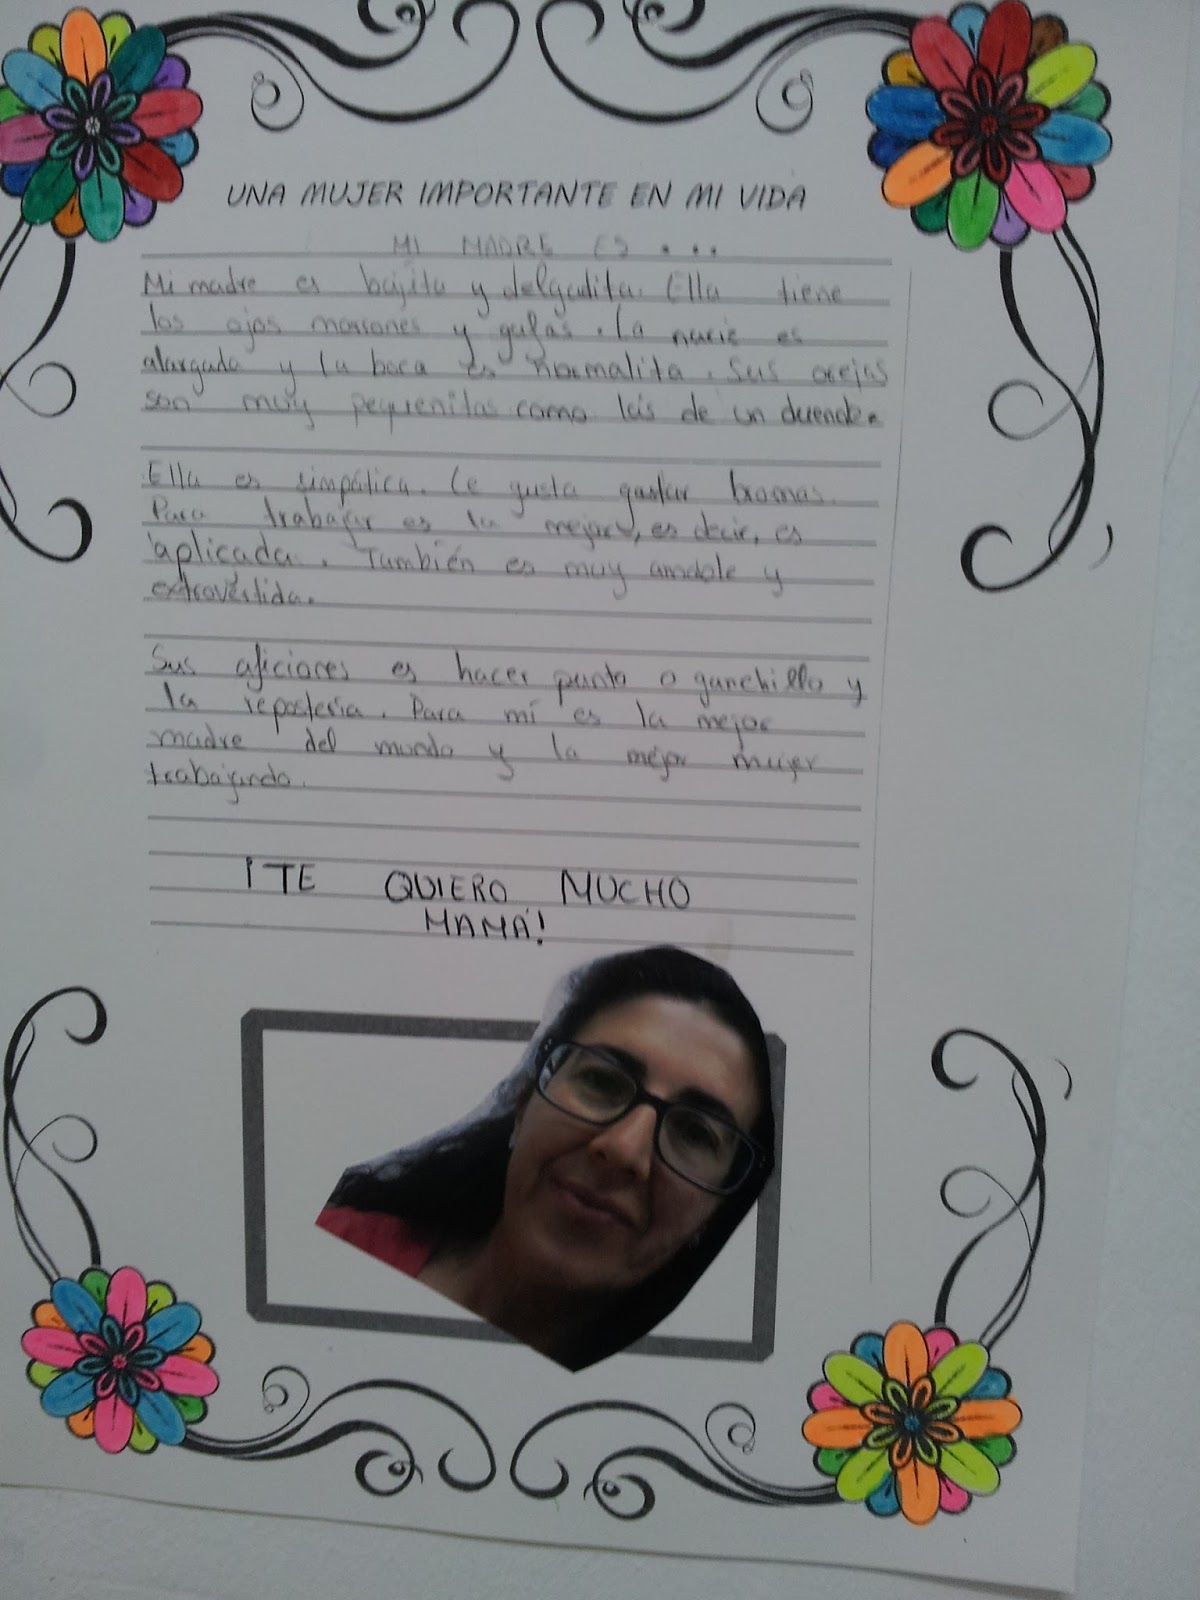 UNA MUJER IMPORTANTE EN MI VIDA
MI MADRE ES...
Mi madre es bajita y delgadita. Ella tiene
los ojos marrones y gafas. La nariz es
alargada y la boca es normalita. Sus orejas
son muy pequeñitas como las de un duende.
Ella es simpática. Le gusta gastar bromas.
Para trabajar es la mejor, es decir, es
aplicada. También es muy amable y
extrovertida.
Sus aficiones es hacer punto o ganchillo y
la repostería. Para mí es la mejor
madre del mundo y la mejor mujer
trabajando.
¡TE QUIERO MUCHO
MAMÁ!